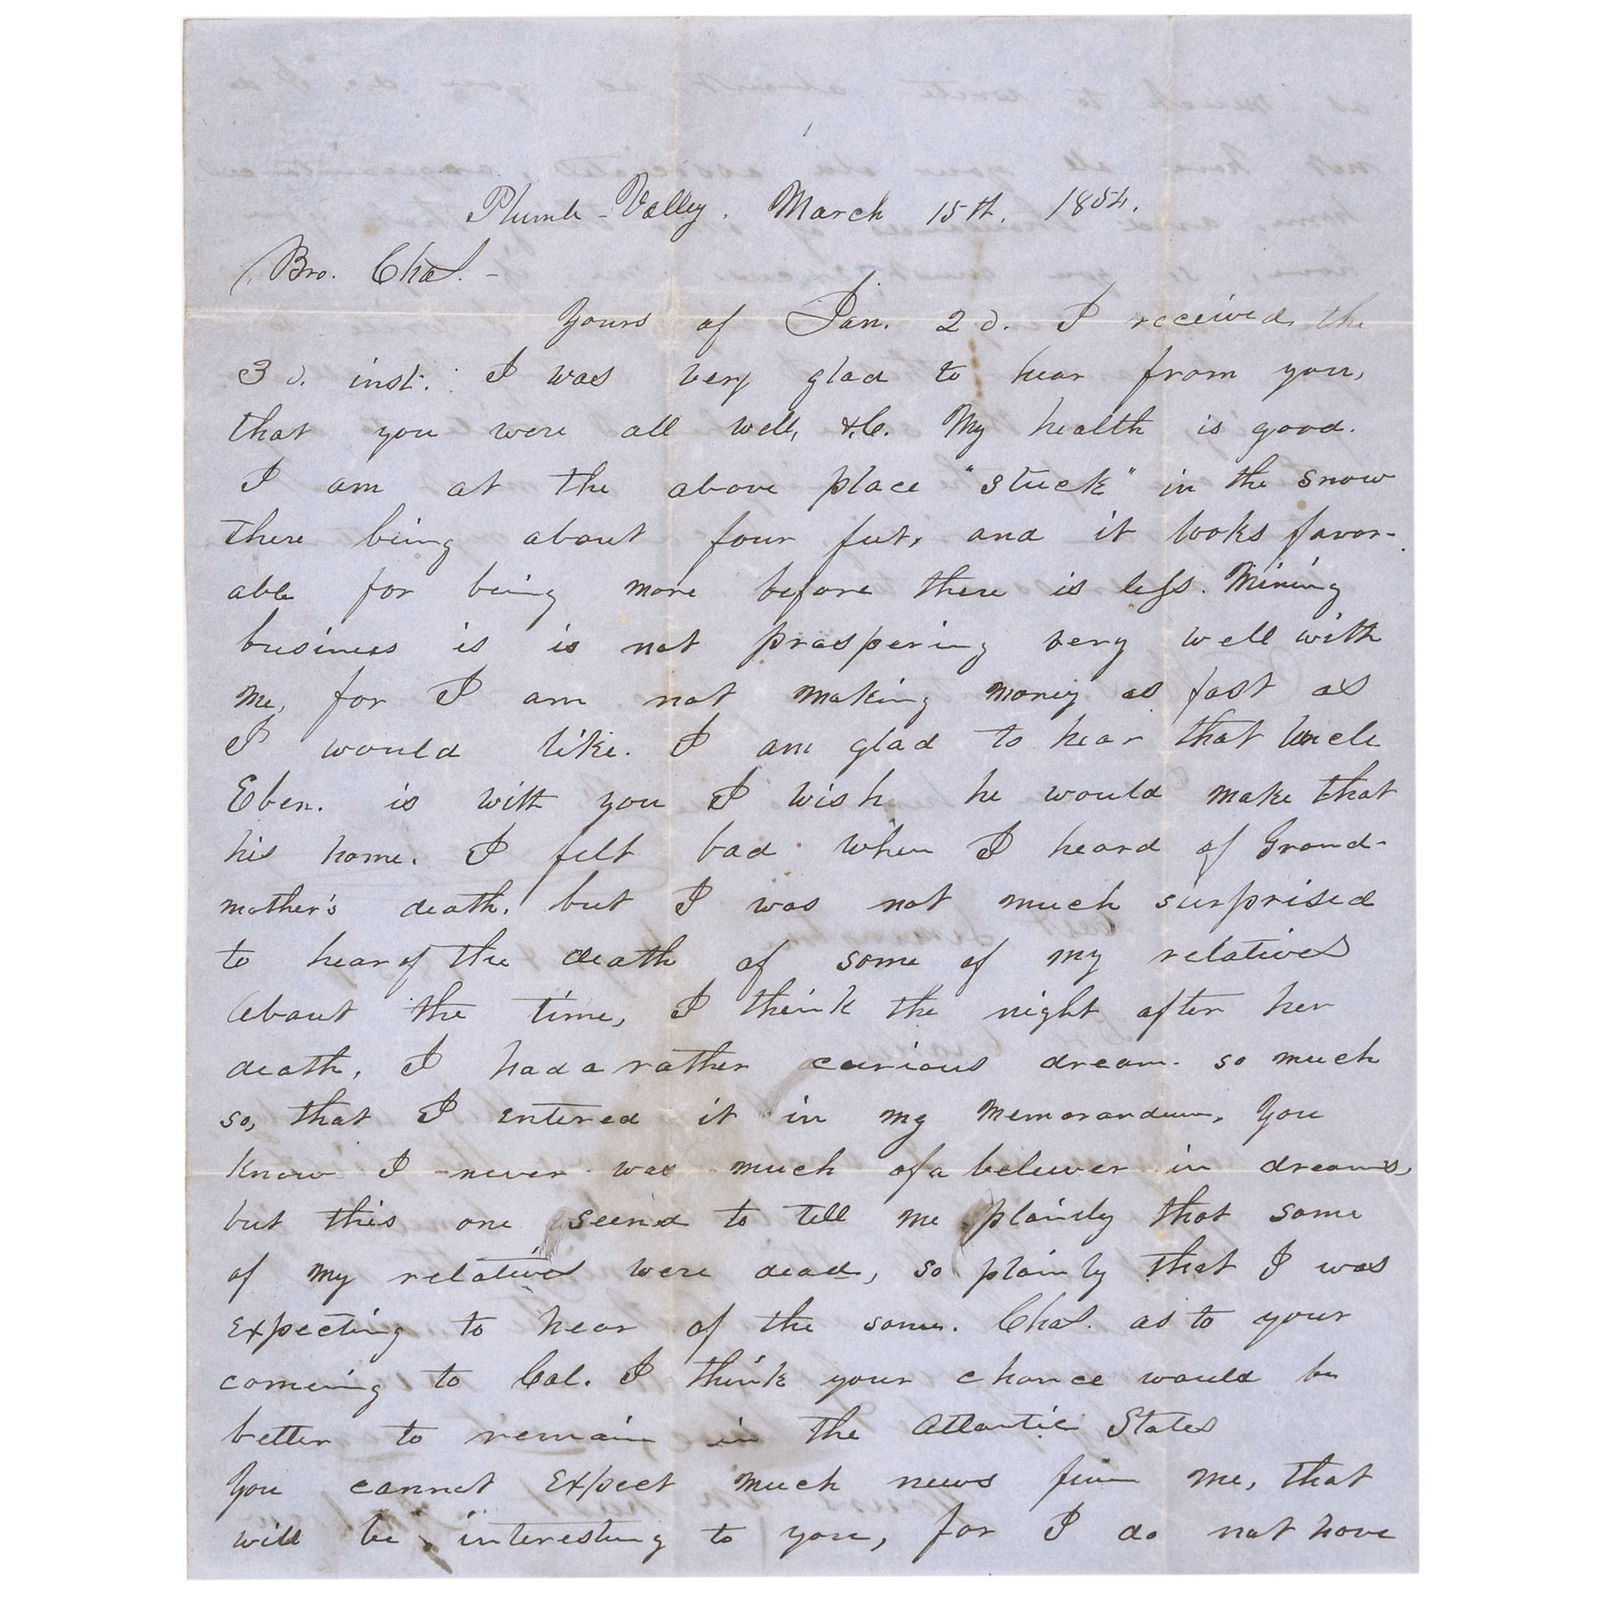 Plumb-Valley. March 15th. 1854.
Bro. Chas. -
Yours of Jan. 2d. I received the
3d. inst. I was very glad to hear from you,
that you were all well, &C. My health is good.
I am at the above place "stuck" in the snow
there being about four feet, and it looks favor-
able for being more before there is less. Mining
business is is not prospering very well with
me, for I am not making money as fast as
I would like. I am glad to hear that Uncle
Eben. is with you I wish he would make that
his home. I felt bad when I heard of Grand-
mother's death, but I was not much surprised
to hear of the death of some of my relatives
About the time, I think the night after her
death, I had a rather curious dream. so much
so, that I entered it in my memorandum, You
know I never was much of a believer in dreams,
but this one seemd to tell me plainly that some
of my relatives were dead, so plainly that I was
expecting to hear of the same. Chas. as to your
coming to Cal. I think your chance would be
better to remain in the Atlantic States
You cannot expect much news from me, that
will be interesting to you, for I do not have